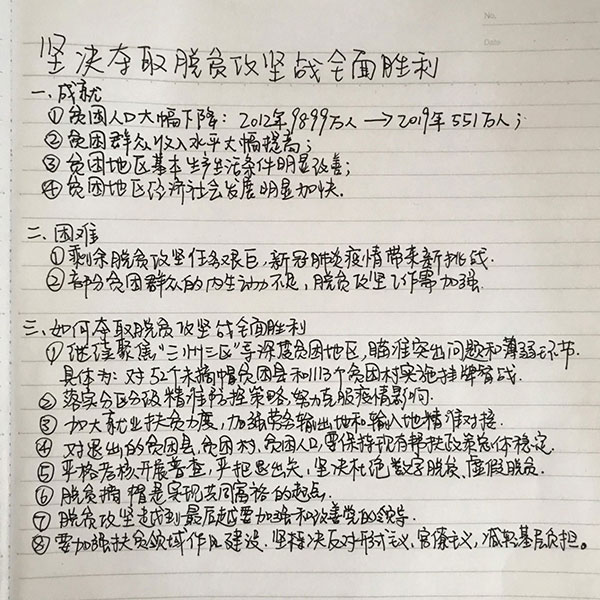 No.
Date
坚决夺取脱贫攻坚战全面胜利
一、成就
①贫困人口大幅下降：2012年9899万人→2019年551万人；
②贫困群众收入水平大幅提高；
③贫困地区基本生产生活条件明显改善；
④贫困地区经济社会发展明显加快.
二、困难
①剩余脱贫攻坚任务艰巨，新冠肺炎疫情带来新挑战.
②部分贫困群众的内生动力不足，脱贫攻坚工作需加强.
三、如何夺取脱贫攻坚战全面胜利
①继续聚焦"三州三区"等深度贫困地区，瞄准突出问题和薄弱环节.
具体为：对52个未摘帽贫困县和1113个贫困村实施挂牌督战.
②落实分区分级精准防控策略，努力克服疫情影响.
③加大就业扶贫力度，加强劳务输出地和输入地精准对接.
④对退出的贫困县、贫困村、贫困人口，要保持现有帮扶政策总体稳定.
⑤严格考核开展普查，严把退出关，坚决杜绝数字脱贫、虚假脱贫.
⑥脱贫摘帽是实现共同富裕的起点.
⑦脱贫攻坚越到最后越要加强和改善党的领导.
⑧要加强扶贫领域作风建设.坚持决反对形式主义、官僚主义，减轻基层负担。